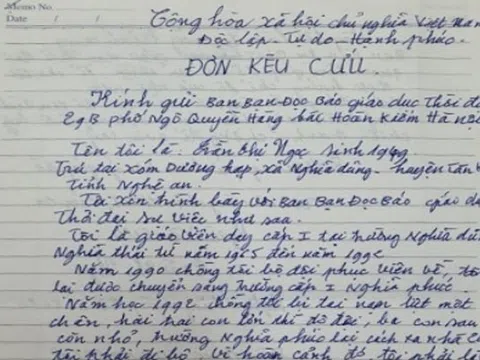 Memo No.
Date / /
Cộng hòa xã hội chủ nghĩa Việt Nam
Độc lập - Tự do - Hạnh phúc.
ĐƠN KÊU CỨU.
Kính gửi Ban Bạn Đọc Báo giáo dục Thời đ
29B phố Ngô Quyền Hàng bài Hoàn Kiếm Hà nội
Tên tôi là: Trần Thị Ngọc sinh 1949
Trú tại xóm Dương hạp, xã Nghĩa dũng - huyện Tân
tỉnh Nghệ an.
Tôi xin trình bày với Ban Bạn Đọc Báo giáo dụ
Thời đại sự việc như sau.
Tôi là giáo viên dạy cấp I tại trường Nghĩa dũ
Nghĩa thái từ năm 1965 đến năm 1992
Năm 1990 chồng tôi bộ đội phục viên về, tô
lại được chuyển sang trường cấp I Nghĩa phúc.
Năm học 1992 chồng tôi bị tai nạn liệt một
chân, hai con lớn thì đi bộ đội, ba con sau
còn nhỏ, trường Nghĩa phúc lại cách xa nhà
tôi phải đi bộ. Vì hoàn cảnh đó tôi phải